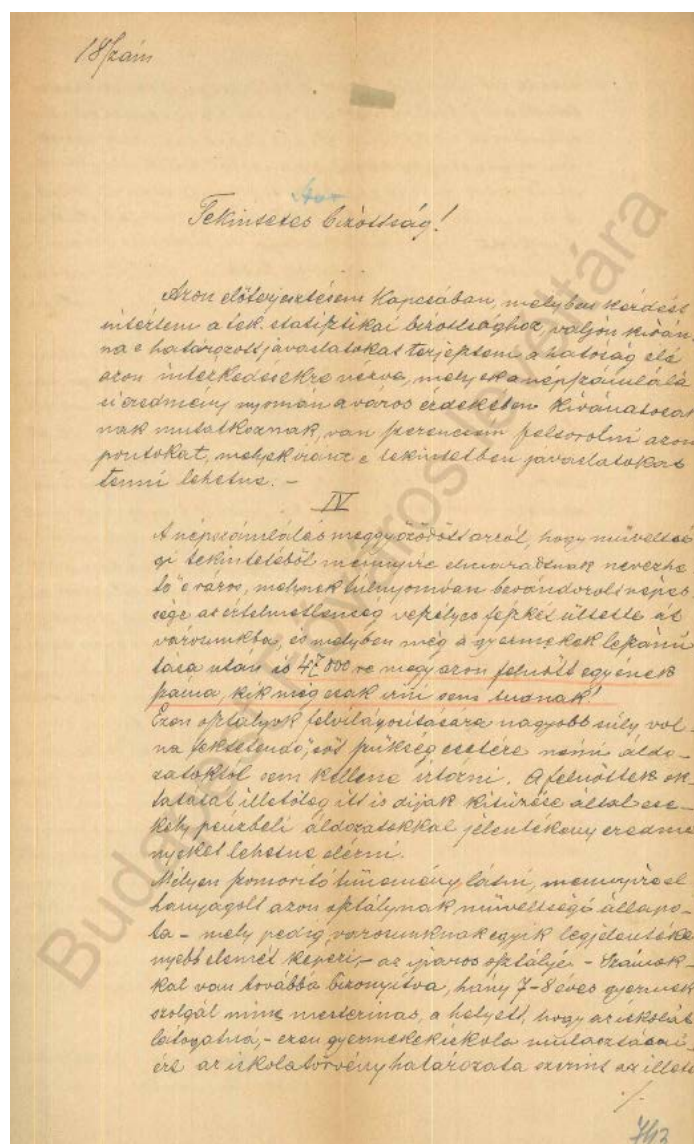 18 szám
Tekintetes bizottság!
Azon előterjesztésem kapcsában, melyben kérdést
intéztem a tek. statisztikai bizottsághoz, valjon kiván-
na e határozott javaslatokat terjeszteni a hatóság elé
azon intézkedésekre nézve, melyek a népszámlálá
si eredmény nyomán a város érdekében kivánatosak
nak mutatkoznak, van szerencsém felsorolni azon
pontokat, melyek iránt e tekintetben javaslatokat
tenni lehetne. –
IV
A népszámlálás meggyőződött arról, hogy műveltsé
gi tekintetéből mennyire elmaradtnak nevezhe
tő e város, melynek túlnyomóan bevándorolt népes
sége az értelmetlenség veszélyes fészkét ültette át
városunkba, és melyben még a gyermekek leszámi
tása után is 47000 re megy azon felnőtt egyének
száma, kik még csak irni sem tudnak!
Ezen osztályok felvilágositására nagyobb súly vol-
na fektetendő, sőt szükség esetére némi áldo-
zatoktól sem kellene irtózni. A felnőttek ok-
tatását illetőleg itt is dijak kitűzése által cse-
kély pénzbeli áldozatokkal jelentékeny eredmé
nyeket lehetne elérni.
Mélyen szomoritó tünemény látni, mennyire el
hanyagolt azon osztálynak műveltségi állapo-
ta – mely pedig városunknak egyik legjelentéke
nyebb elemét képezi, – az iparos osztályé. – Számok-
kal van továbbá bizonyitva, hány 7–8 éves gyermek
szolgál mint mesterinas, a helyett, hogy az iskolát
látogatná, – ezen gyermekek iskola mulasztásai-
ért az iskolatörvény határozata szerint az illető
./.
742
Budapest Főváros Levéltára